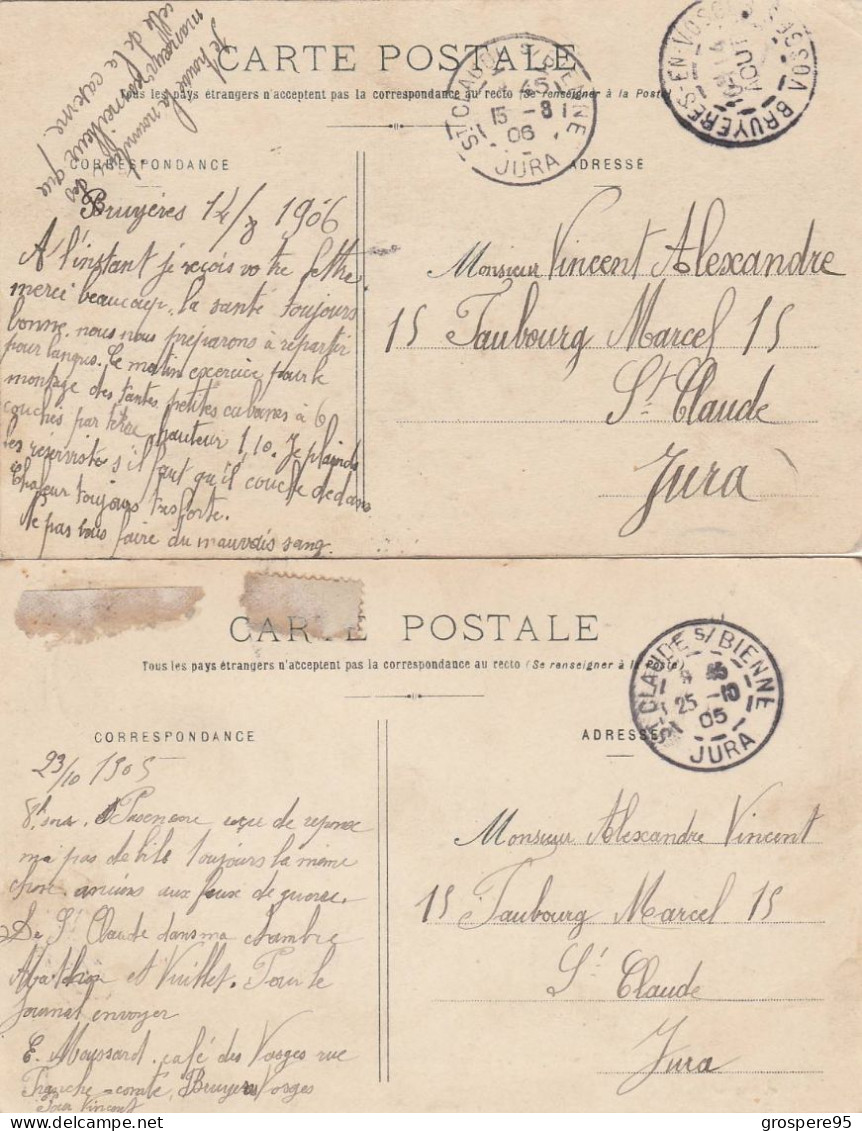 Je trouve la nourriture des
manœuvres meilleure que
celle de la caserne !
CARTE POSTALE
Tous les pays étrangers n'acceptent pas la correspondance au recto (Se renseigner à la Poste)
ST CLAUDE S/BIENNE
15 -8
06
JURA
BRUYERES-EN-VOSGES
14
AOUT
VOSGES
CORRESPONDANCE
ADRESSE
Bruyères 14/8 1906
A l'instant je reçois votre lettre
merci beaucoup, la santé toujours
bonne. nous nous préparons à repartir
pour langres. Ce matin exercice pour le
montage des tentes petites cabanes à 6
couchés par terre hauteur 1,10. Je plains
les réservistes s'il faut qu'il couche dedans
Chaleur toujours très forte.
Ne pas vous faire du mauvais sang.
Monsieur Vincent Alexandre
15 Faubourg Marcel 15
St Claude
Jura
CARTE POSTALE
Tous les pays étrangers n'acceptent pas la correspondance au recto (Se renseigner à la Poste)
ST CLAUDE S/BIENNE
25 -10
05
JURA
CORRESPONDANCE
ADRESSE
23/10 1905
de reponse
pas de bile toujours la même
chose. anciens aux feux de guerre.
De St Claude dans ma chambre
et Vuillet. Pour le
journal envoyer
E. Moussard. café des Vosges rue
Franche-comté, Bruyères Vosges
Pour Vincent
Monsieur Alexandre Vincent
15 Faubourg Marcel 15
St Claude
Jura
Delcampe.net
grospere95